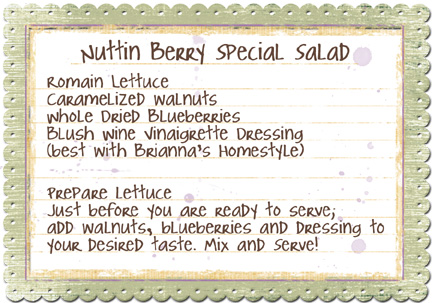 Nuttin Berry Special Salad
Romain Lettuce
Caramelized Walnuts
Whole Dried Blueberries
Blush Wine Vinaigrette Dressing
(best with Brianna's Homestyle)
Prepare Lettuce
Just before you are ready to serve;
add walnuts, blueberries and dressing to
your desired taste. Mix and serve!